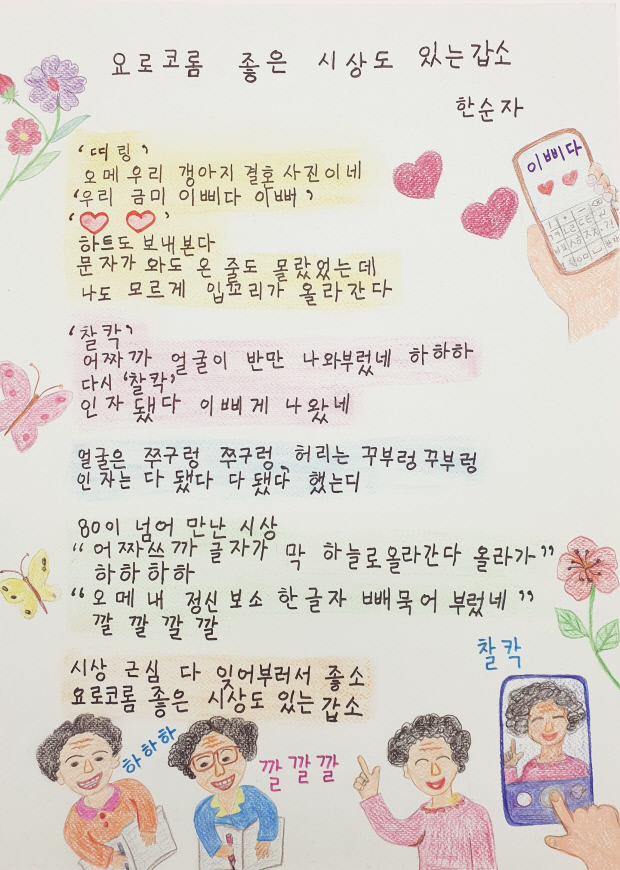 요로코롬 좋은 시상도 있는갑소
한순자
'띠링'
오메 우리 갱아지 결혼사진이네
'우리 금미 이삐다 이뻐'
'♥ ♥'
하트도 보내본다
문자가 와도 온 줄도 몰랐었는데
나도 모르게 입꼬리가 올라간다
이삐다
'찰칵'
어짜까 얼굴이 반만 나와부렀네 하하하
다시 '찰칵'
인자 됐다 이삐게 나왔네
얼굴은 쭈구렁 쭈구렁, 허리는 꾸부렁 꾸부렁
인자는 다 됐다 다 됐다 했는디
80이 넘어 만난 시상
"어짜쓰까 글자가 막 하늘로 올라간다 올라가"
하하하하
"오메 내 정신 보소 한글자 빼묵어 부렀네"
깔 깔 깔 깔
시상 근심 다 잊어부러서 좋소
요로코롬 좋은 시상도 있는갑소
찰칵
하하하
깔깔깔